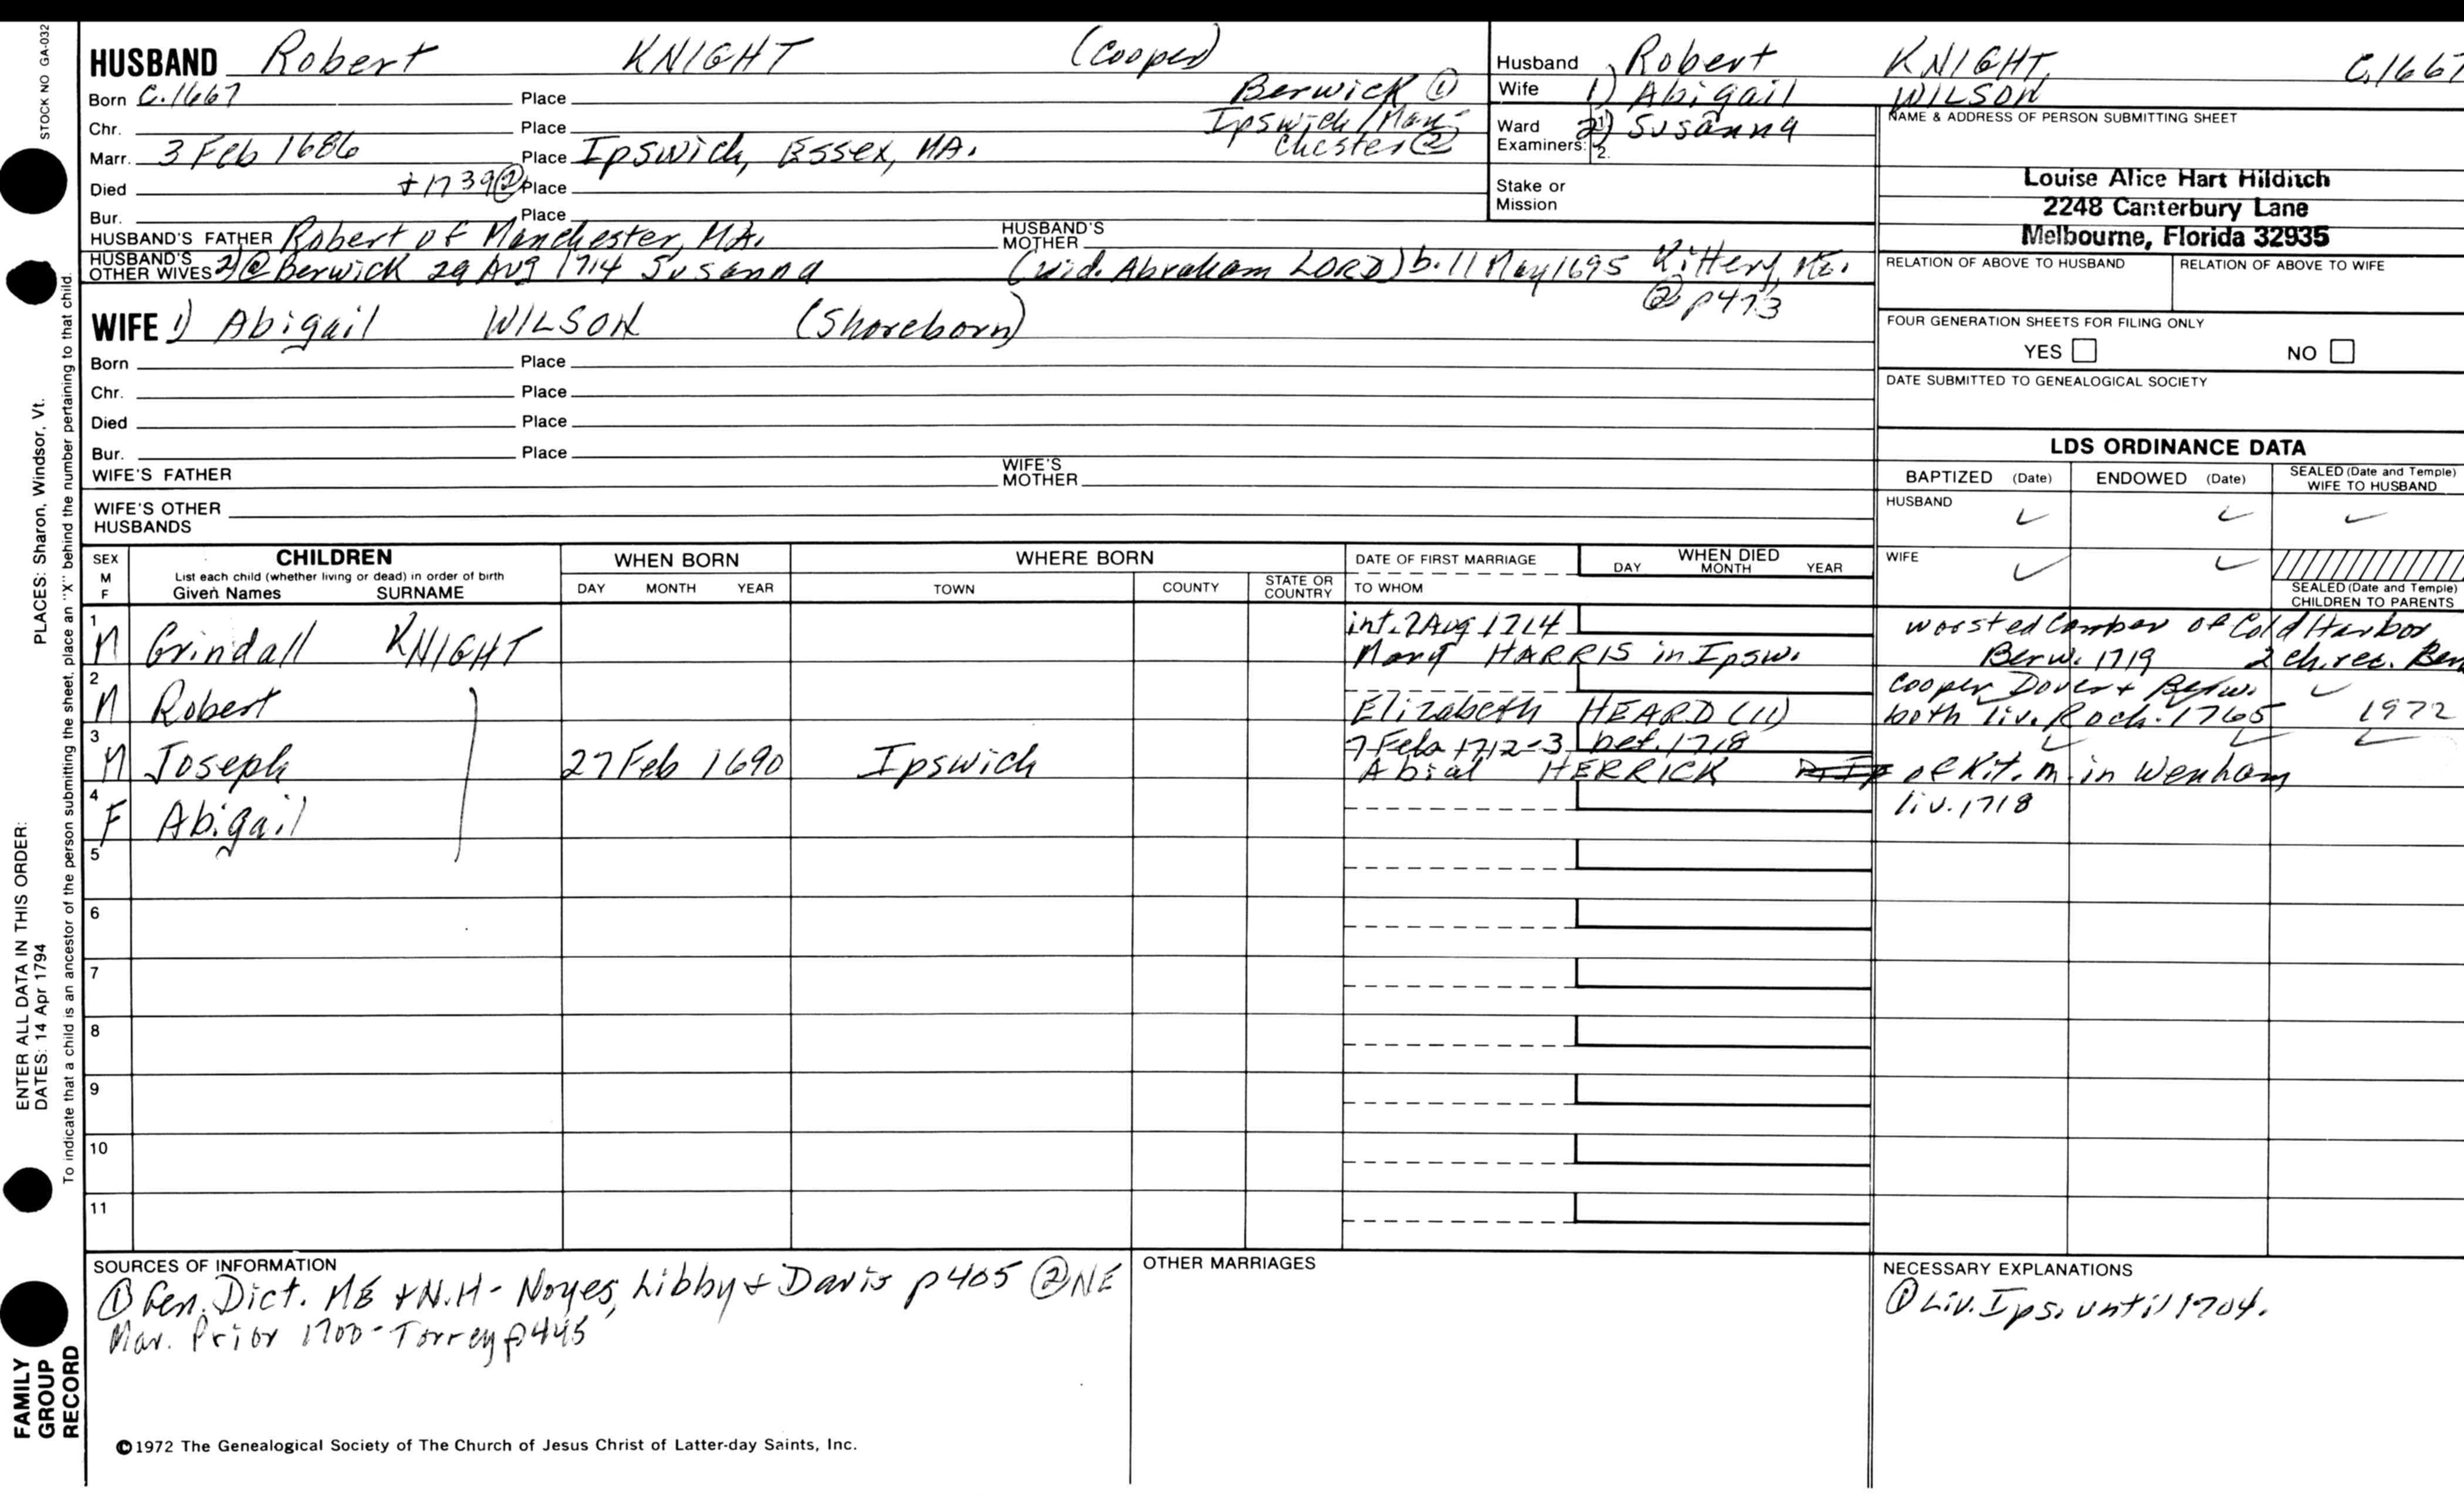 STOCK NO GA-032
PLACES: Sharon, Windsor, Vt.
ENTER ALL DATA IN THIS ORDER:
DATES: 14 Apr 1794
To indicate that a child is an ancestor of the person submitting the sheet, place an "X" behind the number pertaining to that child.
FAMILY
GROUP
RECORD
HUSBAND Robert KNIGHT (Cooper)
Born C.1667 Place Berwick ①
Chr. Place Ipswich/Man-
Marr. 3 Feb 1686 Place Ipswich, Essex, MA. chester ②
Died +1739② Place
Bur. Place
HUSBAND'S FATHER Robert of Manchester, MA. HUSBAND'S MOTHER
HUSBAND'S OTHER WIVES 2) @ Berwick 29 Aug 1714 Susanna (wid. Abraham LORD) b. 11 May 1695 Kittery, ME.
② p473
WIFE 1) Abigail WILSON (Shoreborn)
Born Place
Chr. Place
Died Place
Bur. Place
WIFE'S FATHER WIFE'S MOTHER
WIFE'S OTHER HUSBANDS
Husband Robert KNIGHT, C.1667
Wife 1) Abigail WILSON
Ward Examiners: 1. 2. 2) Susanna
Stake or Mission
NAME & ADDRESS OF PERSON SUBMITTING SHEET
Louise Alice Hart Hilditch
2248 Canterbury Lane
Melbourne, Florida 32935
RELATION OF ABOVE TO HUSBAND RELATION OF ABOVE TO WIFE
FOUR GENERATION SHEETS FOR FILING ONLY
YES NO
DATE SUBMITTED TO GENEALOGICAL SOCIETY
LDS ORDINANCE DATA
BAPTIZED (Date) ENDOWED (Date) SEALED (Date and Temple) WIFE TO HUSBAND
HUSBAND ✓ ✓ ✓
WIFE ✓ ✓
SEALED (Date and Temple) CHILDREN TO PARENTS
SEX M F CHILDREN WHEN BORN WHERE BORN DATE OF FIRST MARRIAGE WHEN DIED
List each child (whether living or dead) in order of birth DAY MONTH YEAR TOWN COUNTY STATE OR COUNTRY TO WHOM DAY MONTH YEAR
Given Names SURNAME
1 int. 7 Aug 1714 worsted Comber of Cold Harbor
M Grindall KNIGHT Mary HARRIS in Ipsw. Berw. 1719 2 ch. rec. Ber
2 Cooper Dover + Berw. ✓
M Robert Elizabeth HEARD (11) both liv. Roch. 1765 1972
3 7 Feb 1712-3 bef. 1718 ✓ ✓ ✓
M Joseph 27 Feb 1690 Ipswich Abial HERRICK of Kit. m. in Wenham
4 liv. 1718
F Abigail
5
6
7
8
9
10
11
SOURCES OF INFORMATION
① Gen. Dict. ME + N.H - Noyes, Libby + Davis p405 ② NE
Mar. Prior 1700 - Torrey p445
OTHER MARRIAGES
NECESSARY EXPLANATIONS
① Liv. Ips. until 1704.
©1972 The Genealogical Society of The Church of Jesus Christ of Latter-day Saints, Inc.